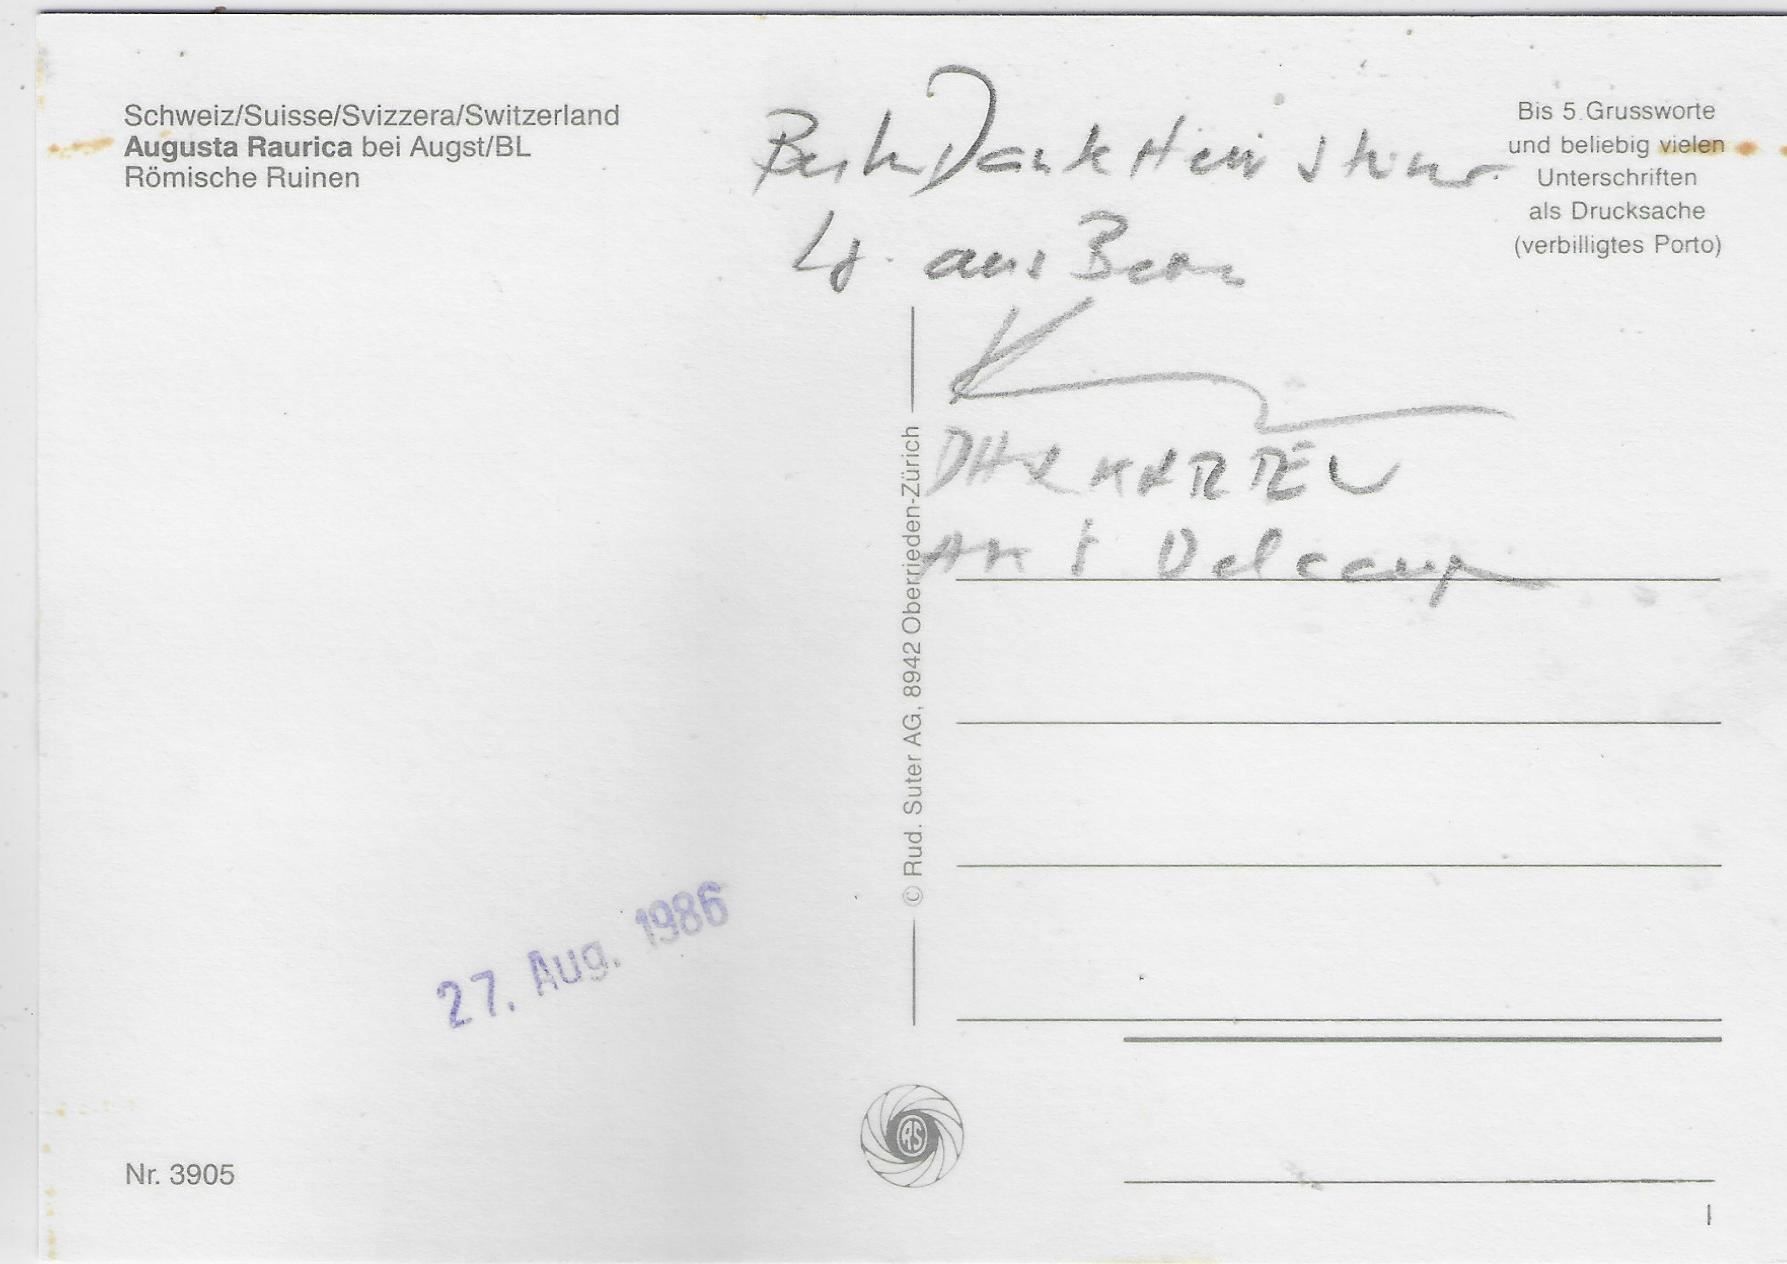 Schweiz/Suisse/Svizzera/Switzerland
Augusta Raurica bei Augst/BL
Römische Ruinen
Dank
aus Bern
Bis 5 Grussworte
und beliebig vielen
Unterschriften
als Drucksache
(verbilligtes Porto)
Delcamp
© Rud. Suter AG, 8942 Oberrieden-Zürich
27. Aug. 1986
RS
Nr. 3905